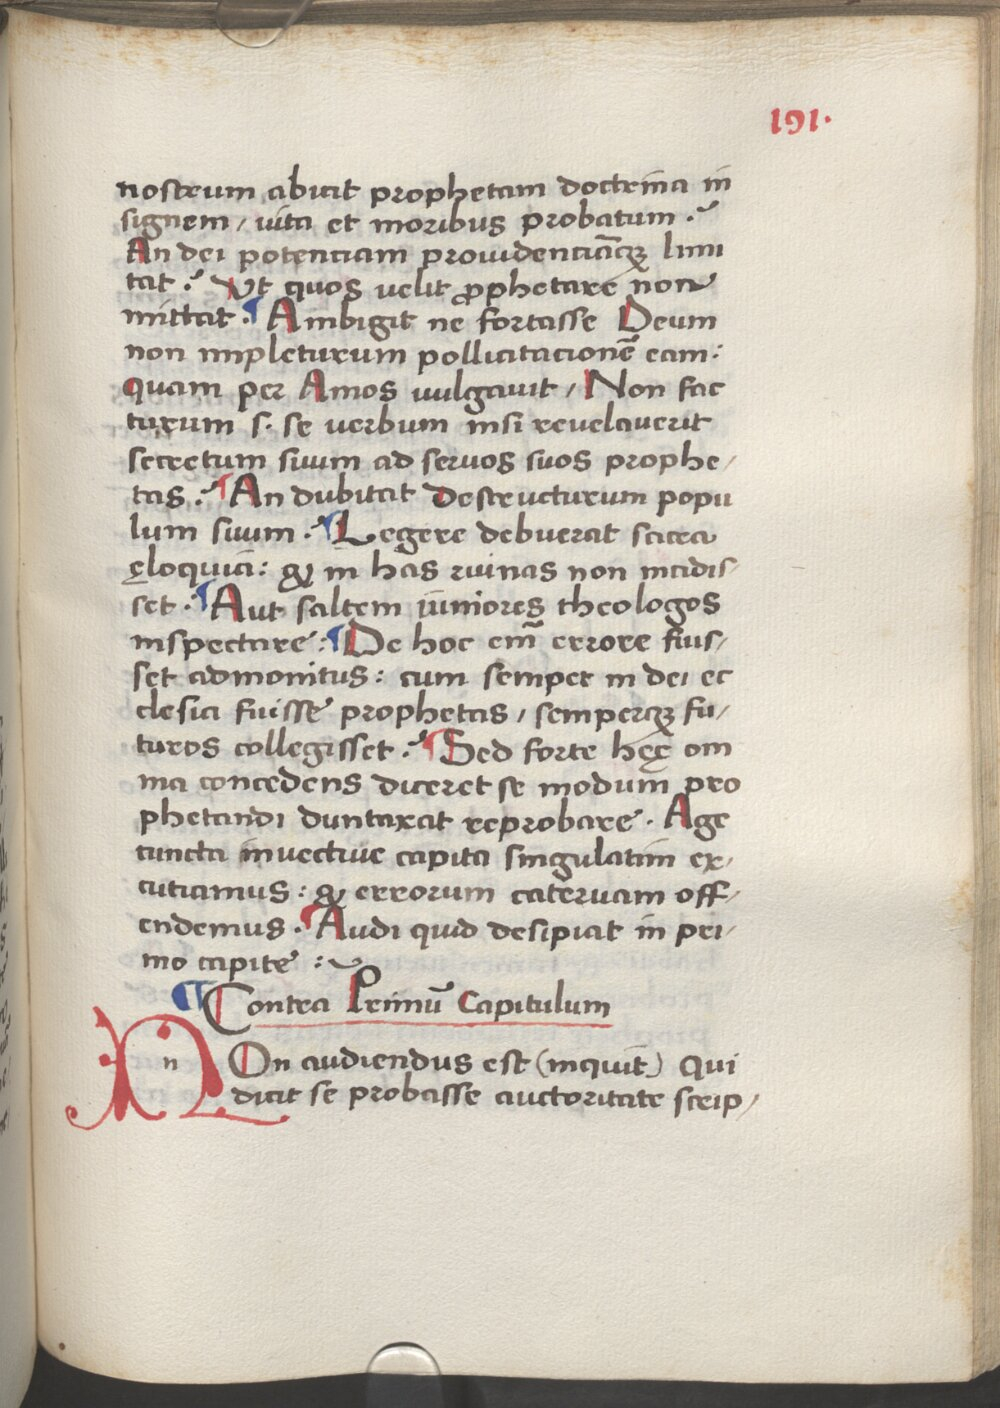 191.
nostrum abicit prophetam doctrina in
signem / uita et moribus probatum .?
An dei potenciam prouidenciãqꝫ limi
tat .? Vt quos uelit ꝓphetare non
mittat . ¶ Ambigit ne fortasse Deum
non impleturum pollicitacionẽ eam :
quam per Amos uulgauit / Non fac
turum s. se uerbum nisi reuelauerit
secretum suum ad seruos suos prophe /
tas .? ¶ An dubitat Destructurum popu
lum suum .? ¶ Legere debuerat sacra
ęloquia : & in has ruinas non incidis /
set . ¶ Aut saltem iuniores theologos
inspectare : ¶ De hoc em̃ errore fuis /
set admonitus : cum semper in dei ec
clesia fuisse prophetas / semperqꝫ fu /
turos collegisset .? ¶ Sed forte hęc om
nia concedens diceret se modum pro
phetandi duntaxat reprobare . Age
cuncta inuectiue capita singulatim ex /
cutiamus : & errorum cateruam off /
endemus . ¶ Audi quid desipiat in pri /
mo capite :
¶ Contra Primũ Capitulum
n NOn audiendus est (inquit) Qui
dicit se probasse auctoritate scrip /